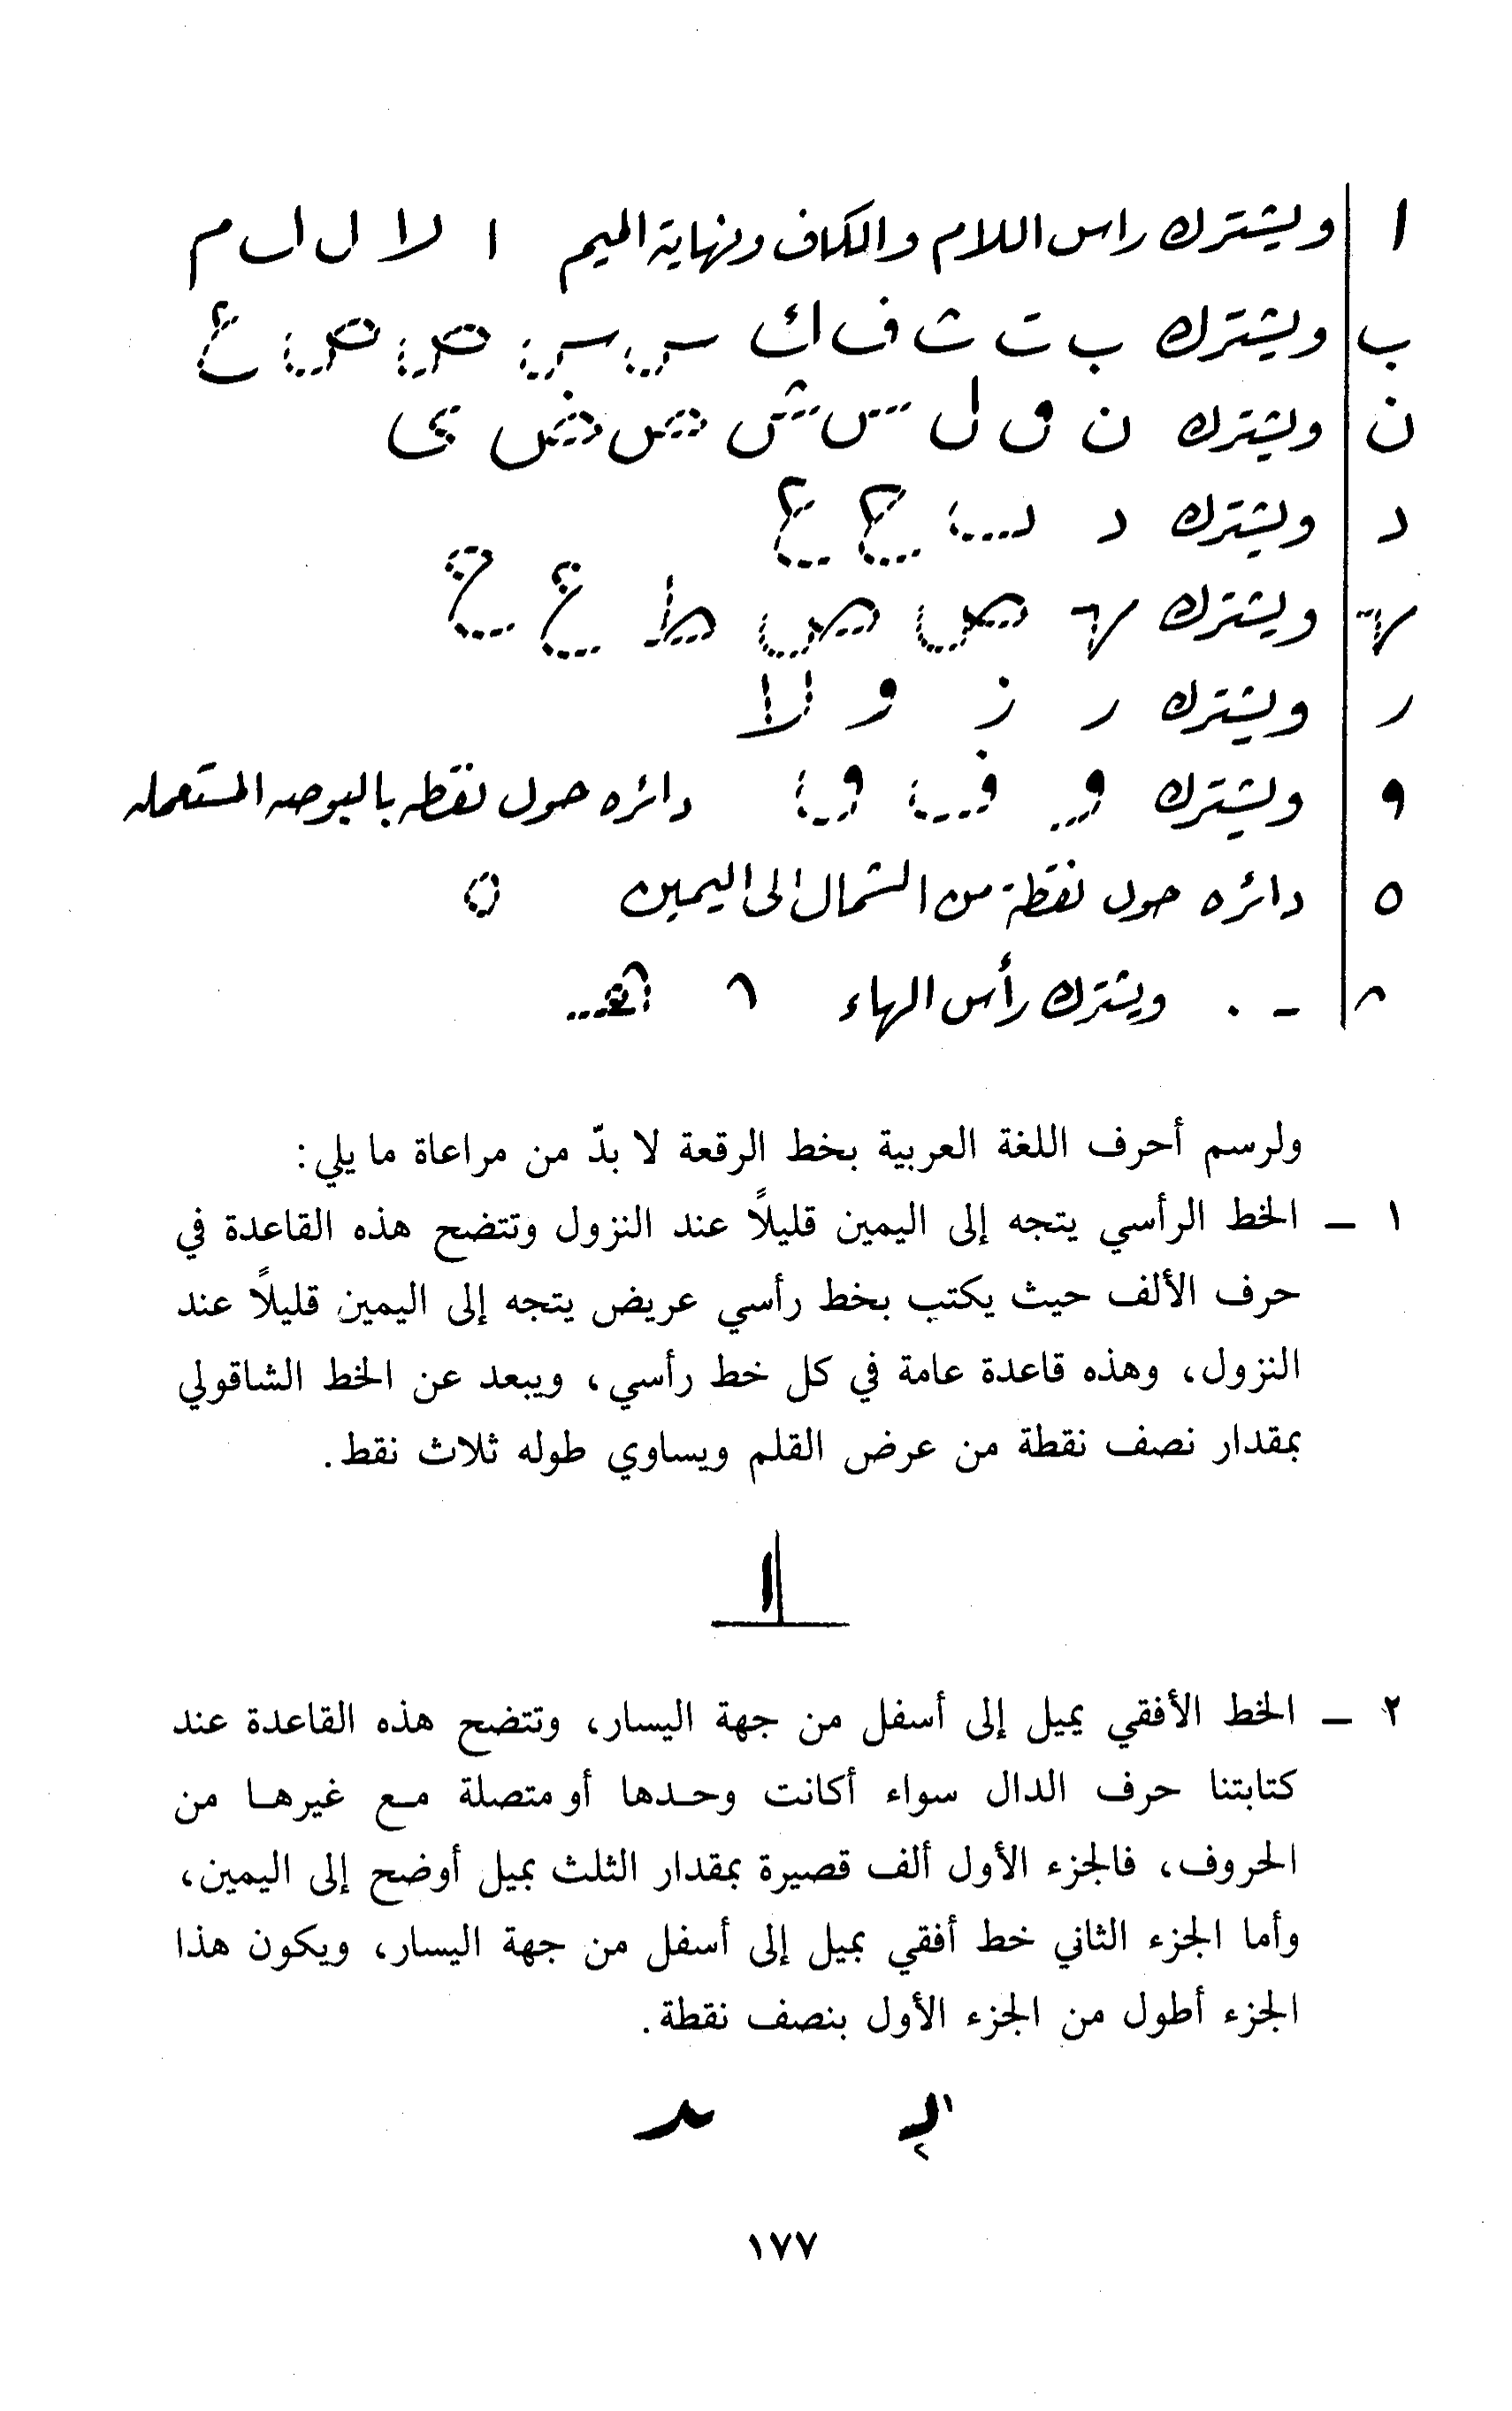 ا ويشترك راس اللام والكاف ونهاية الميم ا لا ل ا ب م
ب ويشترك ب ت ث ف ك س س ص ص ع
ن ويشترك ن ق ل س ش ص ض ى
د ويشترك د د ح ع
ويشترك ص ص ط ع ح
ر ويشترك ر ز و لا
و ويشترك و ف ق دائره حول نقطه بالبوصه المستعمله
ه دائره حول نقطة من الشمال الى اليمين ه
ويشترك رأس الهاء
ولرسم أحرف اللغة العربية بخط الرقعة لا بدّ من مراعاة ما يلي:
١ ـ الخط الرأسي يتجه إلى اليمين قليلاً عند النزول وتتضح هذه القاعدة في
حرف الألف حيث يكتب بخط رأسي عريض يتجه إلى اليمين قليلاً عند
النزول، وهذه قاعدة عامة في كل خط رأسي، ويبعد عن الخط الشاقولي
بمقدار نصف نقطة من عرض القلم ويساوي طوله ثلاث نقط.
ا
٢ ـ الخط الأفقي يميل إلى أسفل من جهة اليسار، وتتضح هذه القاعدة عند
كتابتنا حرف الدال سواء أكانت وحدها أو متصلة مع غيرها من
الحروف، فالجزء الأول ألف قصيرة بمقدار الثلث بميل أوضح إلى اليمين،
وأما الجزء الثاني خط أفقي بميل إلى أسفل من جهة اليسار، ويكون هذا
الجزء أطول من الجزء الأول بنصف نقطة.
د ـد
١٧٧